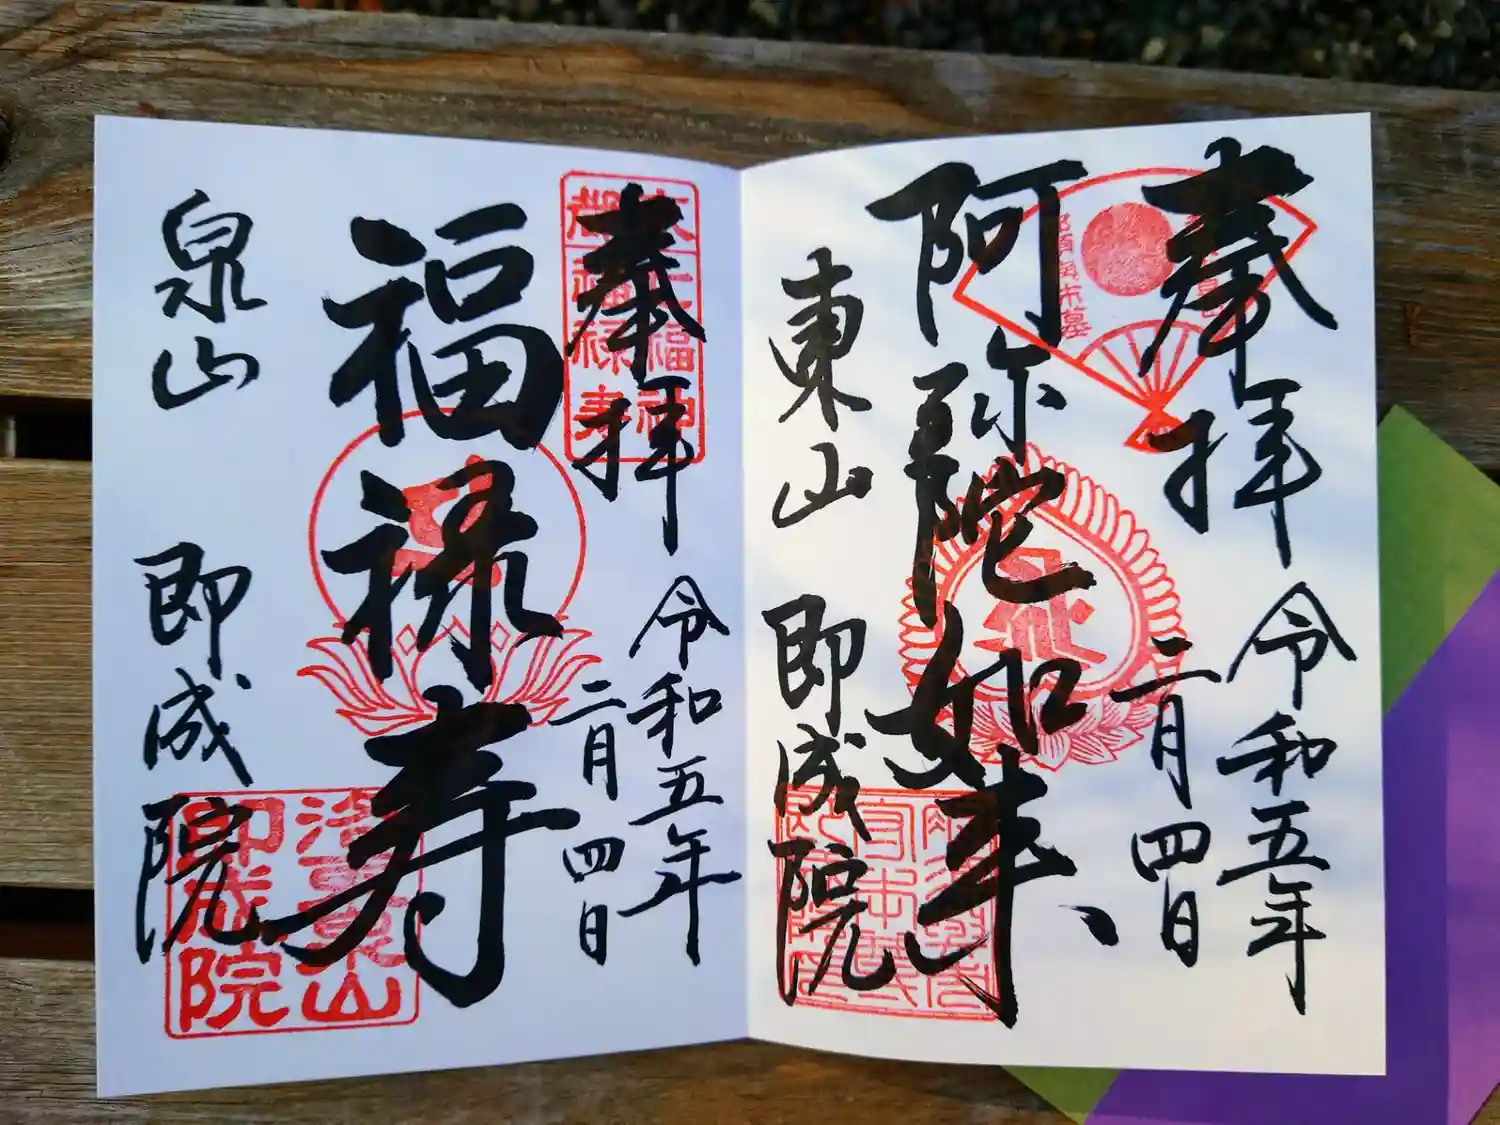 奉拝
令和五年
二月四日
阿弥陀如来
東山
即成院
那須与市墓
奉拝
令和五年
二月四日
福禄寿
泉山
即成院
七福神
福禄寿
即成院